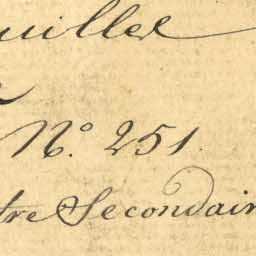 uilles
N.º 251.
tre Secondair